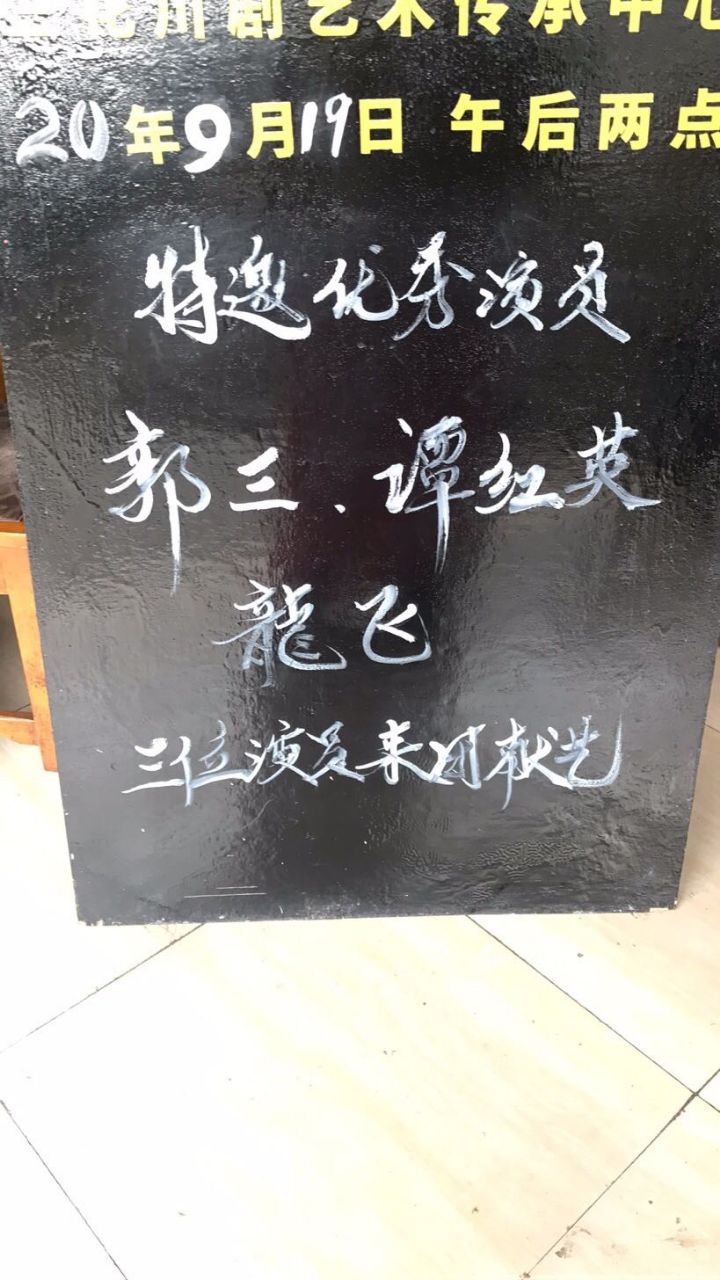 川剧艺术传承中心
20年9月19日 午后两点
特邀优秀演员
郭三、谭红英
龍飞
三位演员来团献艺